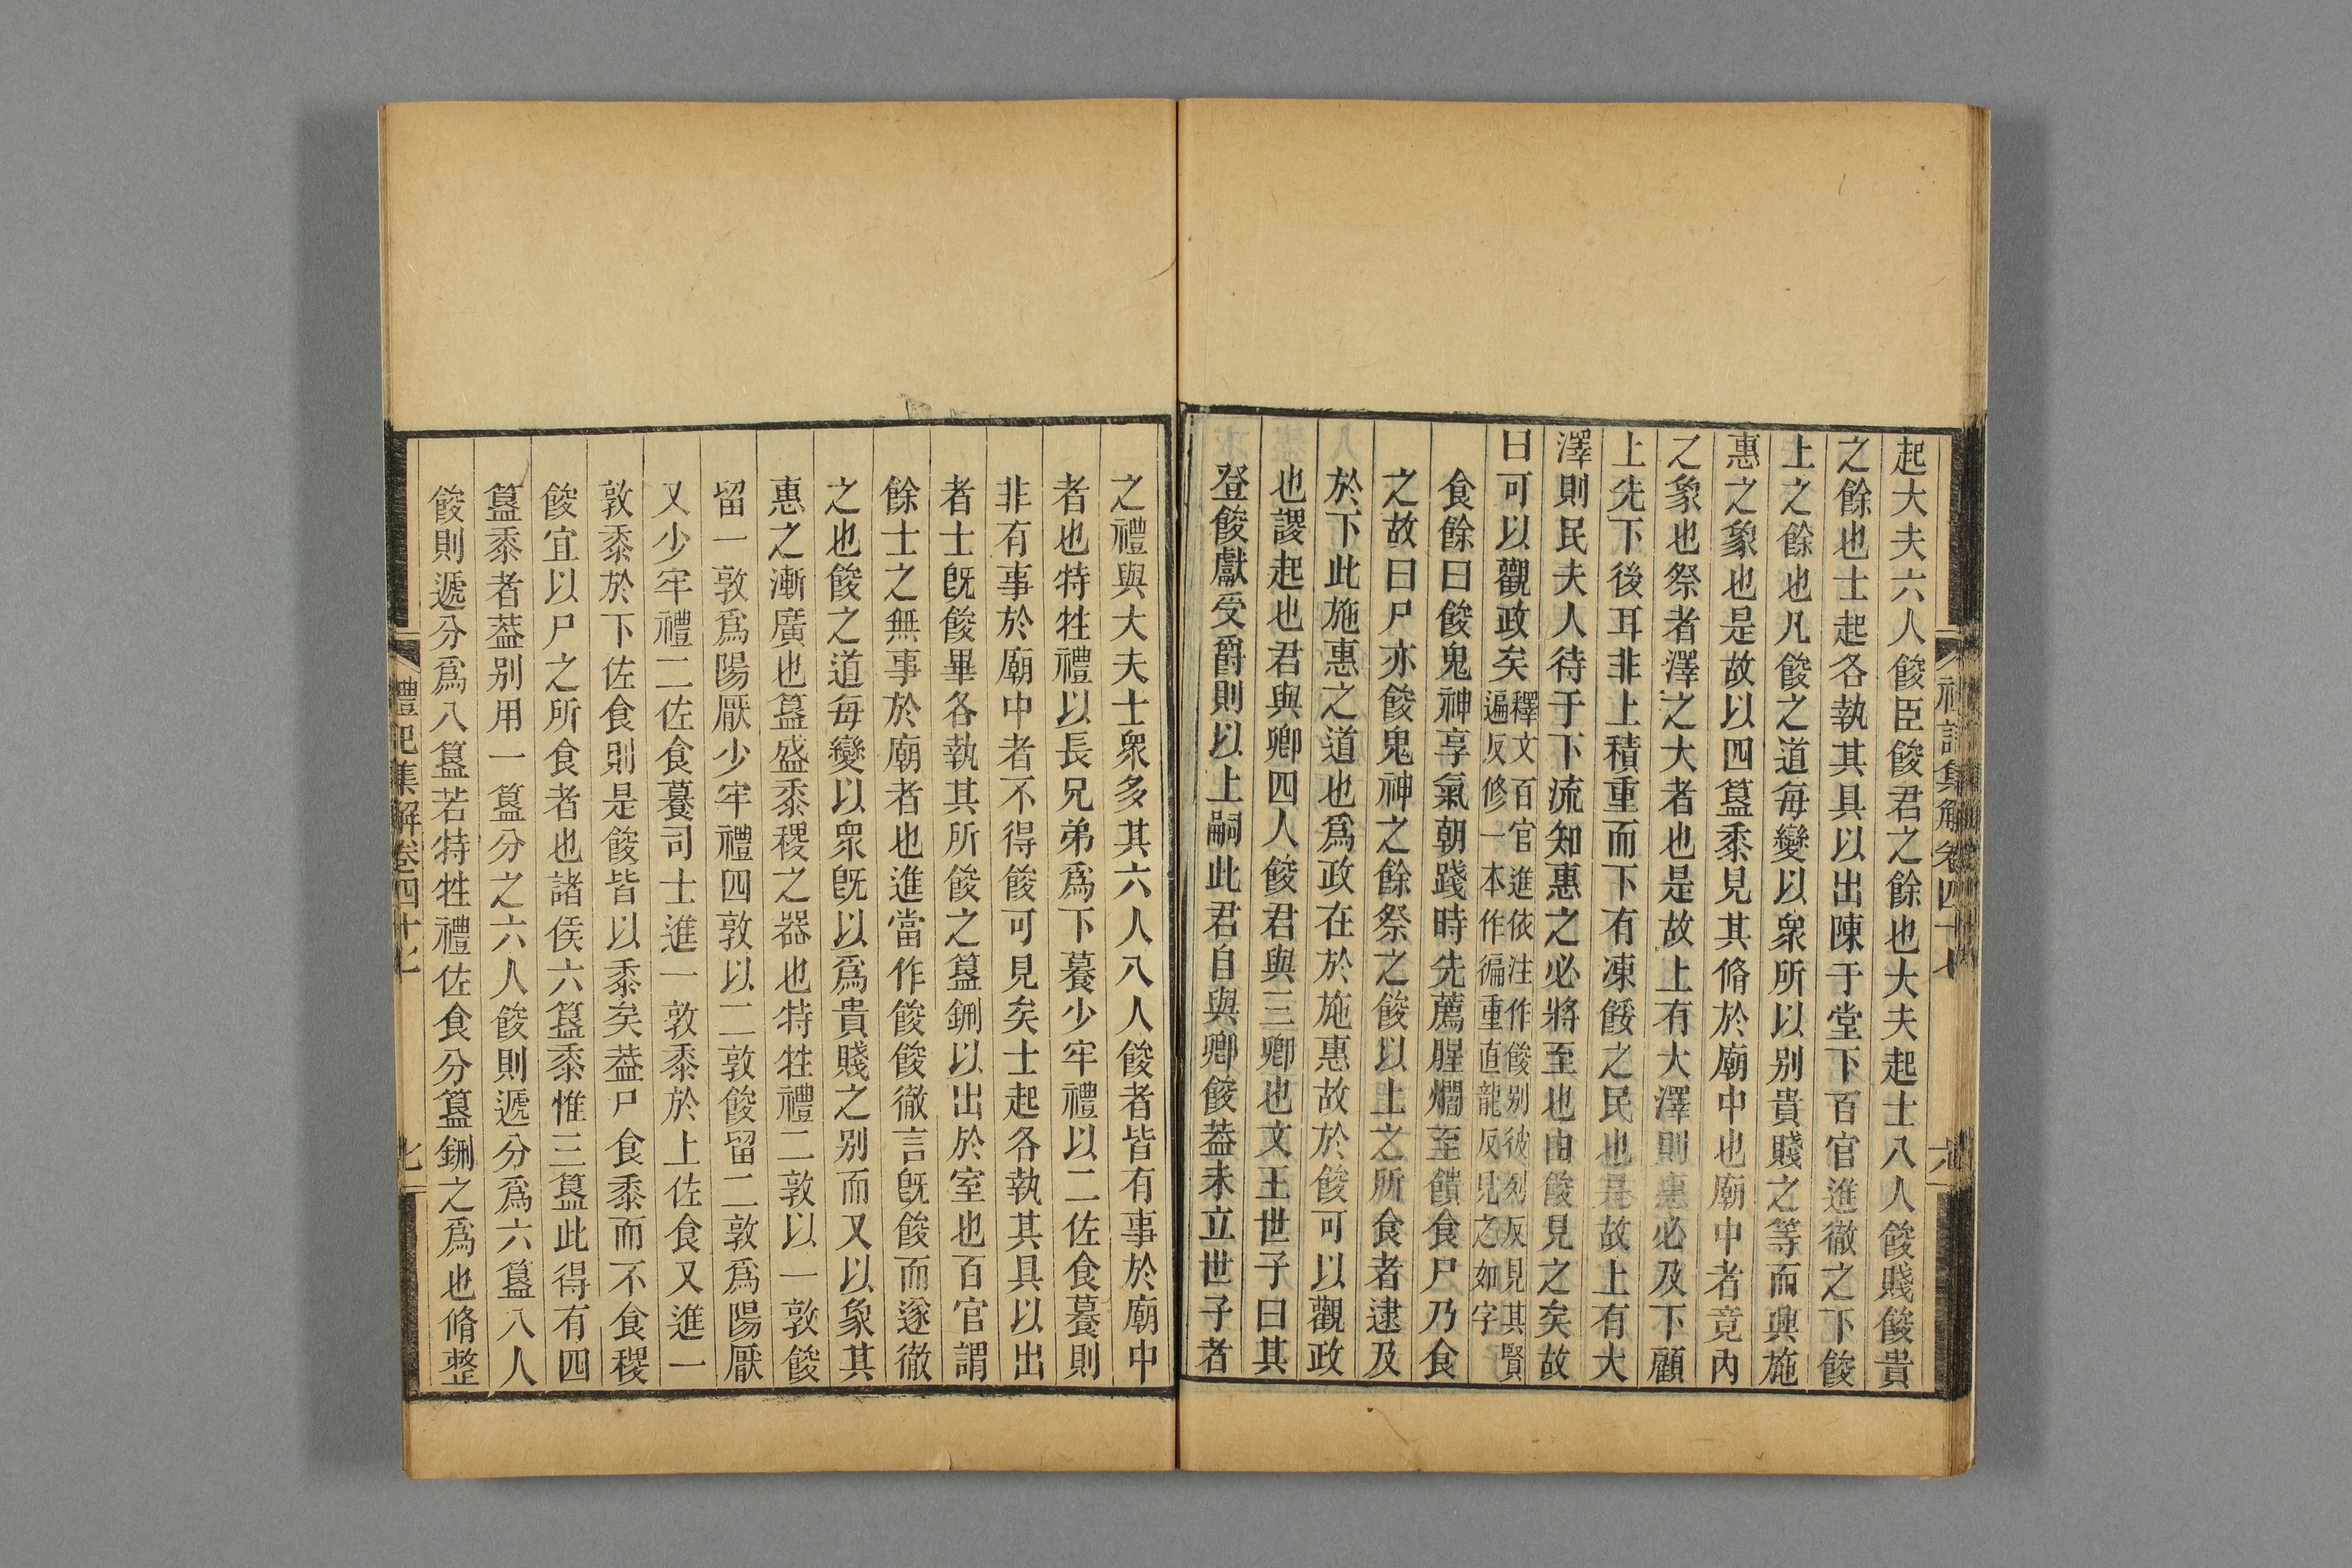 起大夫六人餕臣餕君之餘也大夫起士八人餕賤餕貴
之餘也士起各執其具以出陳于堂下百官進徹之下餕
上之餘也凡餕之道每變以衆所以别貴賤之等而興施
惠之象也是故以四簋黍見其脩於廟中也廟中者竟内
之象也祭者澤之大者也是故上有大澤則惠必及下顧
上先下後耳非上積重而下有凍餒之民也是故上有大
澤則民夫人待于下流知惠之必將至也由餕見之矣故
曰可以觀政矣釋文百官進依注作餕别彼列反見其賢
遍反修一本作徧重直龍反見之如字
食餘曰餕鬼神享氣朝踐時先薦腥爓至饋食尸乃食
之故曰尸亦餕鬼神之餘祭之餕以上之所食者逮及
於下此施惠之道也爲政在於施惠故於餕可以觀政
也謖起也君與卿四人餕君與三卿也文王世子曰其
登餕獻受爵則以上嗣此君自與卿餕葢未立世子者
禮記集解卷四十七
六
之禮與大夫士衆多其六人八人餕者皆有事於廟中
者也特牲禮以長兄弟爲下養少牢禮以二佐食養則
非有事於廟中者不得餕可見矣士起各執其具以出
者士旣餕畢各執其所餕之簋鉶以出於室也百官謂
餘士之無事於廟者也進當作餕餕徹言旣餕而遂徹
之也餕之道每變以衆旣以爲貴賤之别而又以象其
惠之漸廣也簋盛黍稷之器也特牲禮二敦以一敦餕
留一敦爲陽厭少牢禮四敦以二敦餕留二敦爲陽厭
又少牢禮二佐食養司士進一敦黍於上佐食又進一
敦黍於下佐食則是餕皆以黍矣葢尸食黍而不食稷
餕宜以尸之所食者也諸侯六簋黍惟三簋此得有四
簋黍者葢别用一簋分之六人餕則遞分爲六簋八人
餕則遞分爲八簋若特牲禮佐食分簋鉶之爲也脩整
禮記集解卷四十七
七